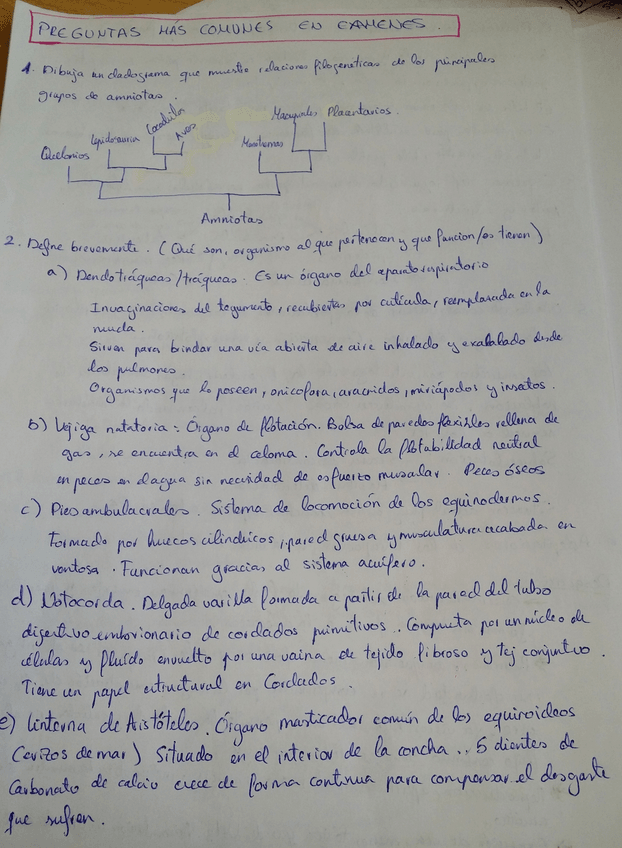 PREGUNTAS MÁS COMUNES EN EXAMENES.
1. Dibuja un cladograma que muestre relaciones filogeneticas de los principales
grupos de amniotas.
Quelonios Lepidosauria Cocodrilos Aves Monotremas Marsupiales Placentarios.
Amniotas
2. Define brevemente. (Qué son, organismo al que pertenecen y que funcion/es tienen)
a) Dendotráqueas/tráqueas. Es un órgano del aparato respiratorio
Invaginaciones del tegumento, recubiertas por cutícula, reemplasada en la
muda.
Sirven para brindar una vía abierta de aire inhalado y exhalado desde
los pulmones.
Organismos que lo poseen, onicofora, aracnidos, miriápodos y insectos.
b) Vejiga natatoria: Órgano de flotación. Bolsa de paredes flexibles rellena de
gas, se encuentra en el celoma. Controla la flotabilidad neutral
en peces en el agua sin necesidad de esfuerzo muscular. Peces óseos
c) Pies ambulacrales. Sistema de locomoción de los equinodermos.
Formado por huecos cilindricos, pared gruesa y musculatura acabada en
ventosa. Funcionan gracias al sistema acuífero.
d) Notocorda. Delgada varilla formada a partir de la pared del tubo
digestivo embrionario de cordados primitivos.. Compuesta por un núcleo de
células y fluído envuelto por una vaina de tejido fibroso y tej conjuntivo.
Tiene un papel estructural en Cordados.
e) Linterna de Aristóteles. Órgano masticador común de los equiroideos
(erizos de mar) Situado en el interior de la concha.. 5 dientes de
Carbonato de calcio crece de forma continua para compensar el desgaste
que sufren.